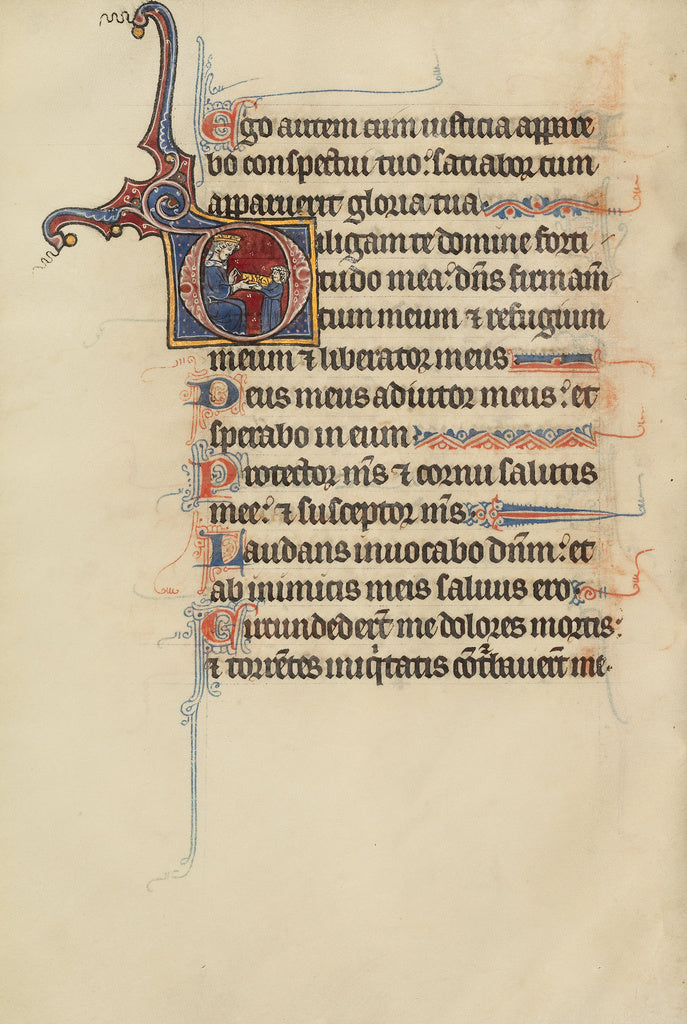 Ego autem cum iusticia appare
bo conspectui tuo: saciabor cum
apparuerit gloria tua
Diligam te domine forti
tudo mea: dn̄s firmam̄
tum meum ⁊ refugium
meum ⁊ liberator meus
Deus meus adiutor meus: et
sperabo in eum
Protector m̄s ⁊ cornu salutis
mee: ⁊ susceptor m̄s
Laudans inuocabo dn̄m: et
ab inimicis meis saluus ero
Circundeder̄t me dolores mortis:
⁊ torrētes iniqͥtatis cōtᷓbauer̄t me